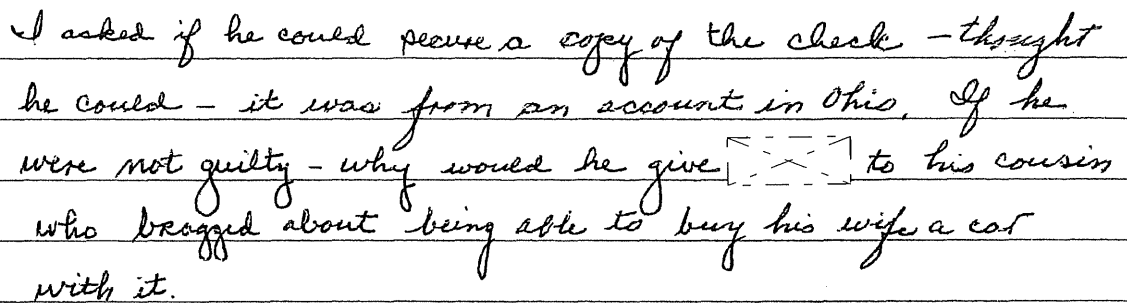 I asked if he could secure a copy of the check - thought
he could - it was from an account in Ohio. If he
were not guilty - why would he give to his cousin
who bragged about being able to buy his wife a car
with it.